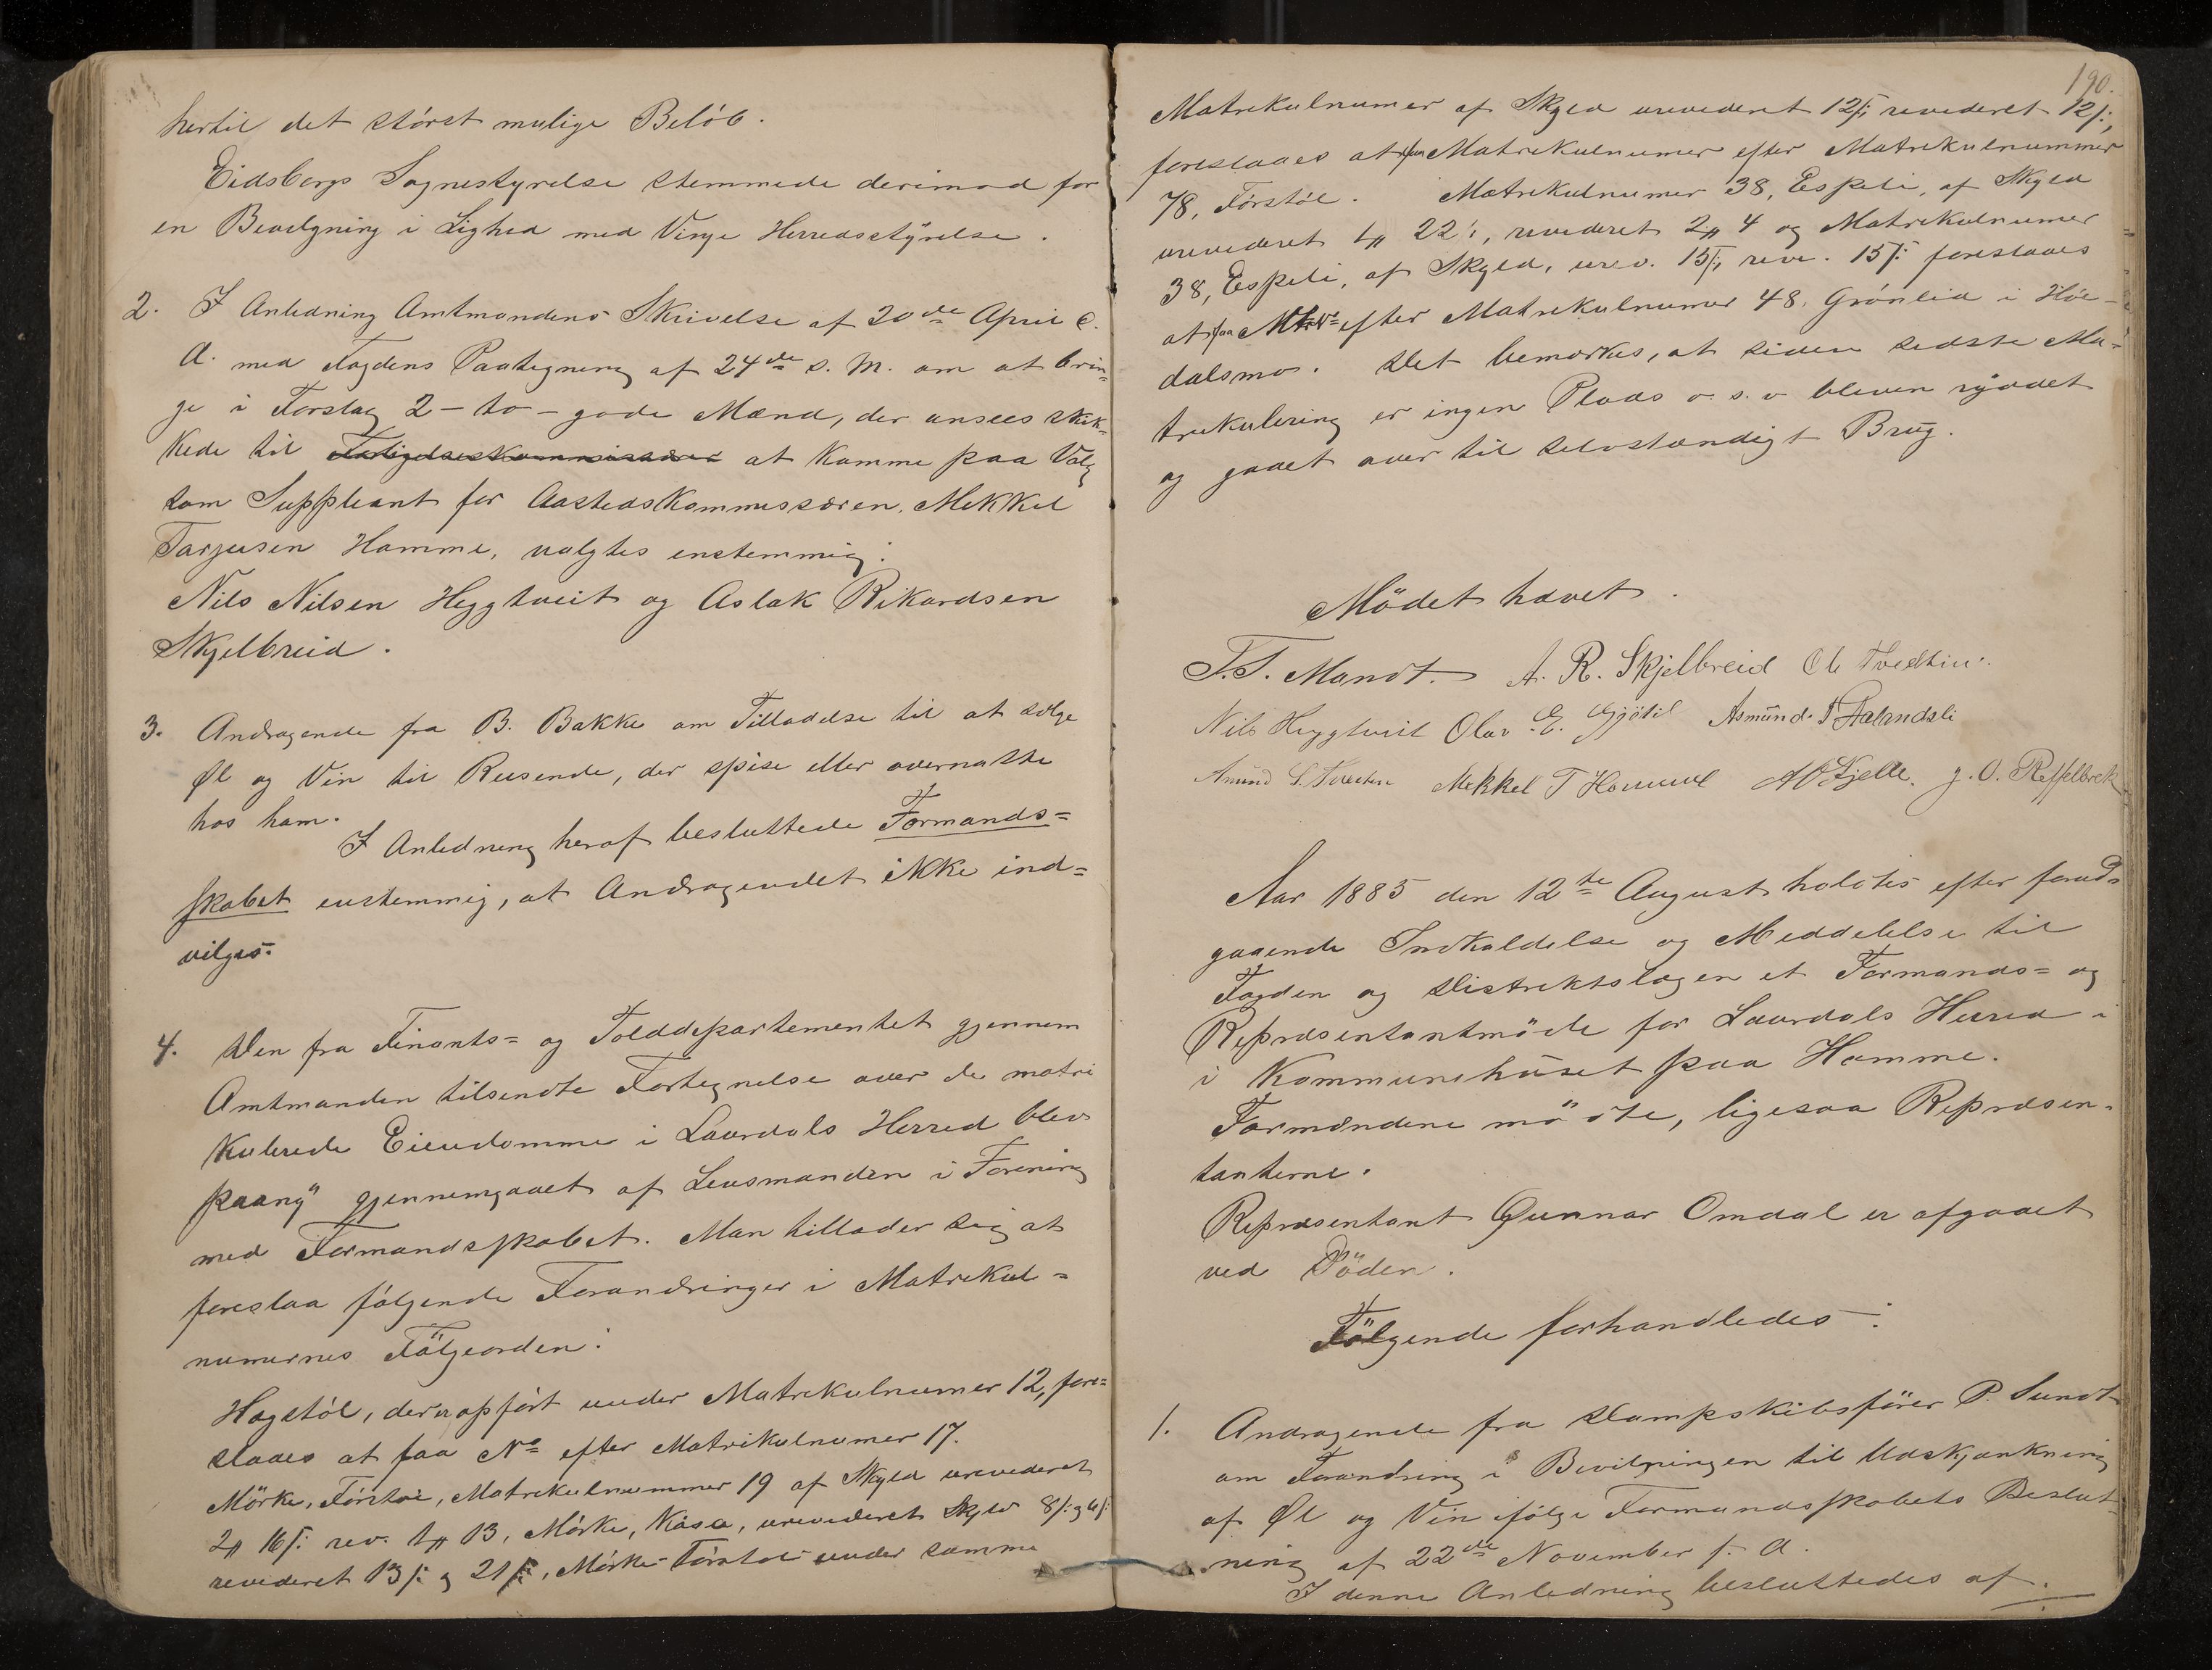 hertil det störst mulige Belöb.
Eidsborgs Sognestyrelse stemmede derimod for
en Bevilgning i Lighed med Vinje Herredsstyrelse.
2. I Anledning Amtmandens Skrivelse af 20de April d.
A. med Fogdens Paategning af 24de s. M. om at brin=
ge i Forslag 2 - to - gode Mænd, der ansees skik=
kede til Forligelseskommissær at komme paa Valg
som Suppleant for Aastedskommissæren, Mekkel
Tarjeisen Homme, valgtes enstemmig:
Nils Nilsen Heggtveit og Aslak Rikardsen
Skjelbreid.
3. Andragende fra B. Bakke om Tilladelse til at sælge
Øl og Vin til Reisende, der spise eller overnatte
hos ham.
I Anledning heraf besluttede Formands=
skabet enstemmig, at Andragendet ikke ind=
vilges.
4. Den fra Finants= og Tolddepartementet gjennem
Amtmanden tilsendte Fortegnelse over de matri
kulerede Eiendomme i Laurdals Herred blev
paany gjennemgaaet af Lensmanden i Forening
med Formandsskabet. Man tillader sig at
foreslaa fölgende Forandringer i Matrikul=
numernes Fölgeorden:
Hagstöl, der er opfört under Matrikulnumer 12, fore=
slaaes at faa No efter Matrikulnumer 17.
Mörke, Förstöl, Matrikulnummer 19 af Skyld urevideret
2 16 rev. 1 13, Mörke, Kåsa, urevideret Skyld 8 og
revideret 13 og 21, Mörke Förstöl under samme
190.
Matrikulnumer af Skyld urevideret 12 revideret 12,
foreslaaes at faa Matrikulnumer efter Matrikulnummer
78, Förstöl. Matrikulnumer 38, Espeli, af Skyld
urevideret 1 22, revideret 2 4 og Matrikulnumer
38, Espeli, af Skyld, urev. 15, reve. 15 foreslaaes
at faa efter Matrikulnumer 48, Grönlid i Höi-
dalsmo. Det bemærkes, at siden sidste Ma=
trikulering er ingen Plads o. s. v bleven ryddet
og gaaet over til selvstændigt Brug.
Mödet hævet.
T. T. Mandt. A. R. Skjelbreid Ol Tvedtin
Nils Heggtveit Olav E. Gjötil Asmund T
Amund S. Mekkel T Homme
Aar 1885 den 12te August holdtes efter forud=
gaaende Indkaldelse og Meddelelse til
Fogden og Distriktslægen et Formands= og
Repræsentantmöde for Laurdals Herred i
i Kommunehuset paa Homme.
Formændene mödte, ligesaa Repræsen=
tanterne.
Repræsentant Gunnar Omdal er afgaaet
ved Döden.
Fölgende forhandledes:
1. Andragende fra Dampskibsförer P. Sundt
om Forandring i Bevilgningen til Udskjænkning
af Øl og Vin ifölge Formandsskabets Beslut=
ning af 22de November f. A.
I denne Anledning besluttedes af